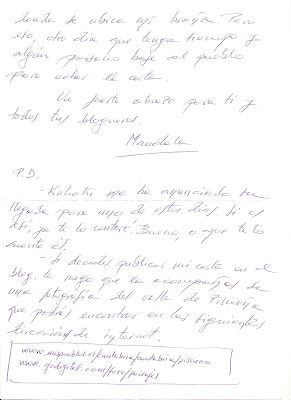 donde se ubica mi braña. Pero
eso, otro día que tenga tiempo y
algún paisano baje al pueblo
para echar la carta.
Un fuerte abrazo para ti y
todos tus blogueros.
P.D.
- Kuhaki me ha anunciado su
llegada para uno de estos días. Si es
así, ya te lo contaré. Bueno, o que te lo
cuente él.
- Si decides publicar mi carta en el
blog, te ruego que la acompañes de
una fotografía del valle de Pisueña
que podrás encontrar en las siguientes
direcciones de internet.
www.mispueblos.es/cantabria/cantabria/pisuena
www.ojodigital.com/foro/paisajes